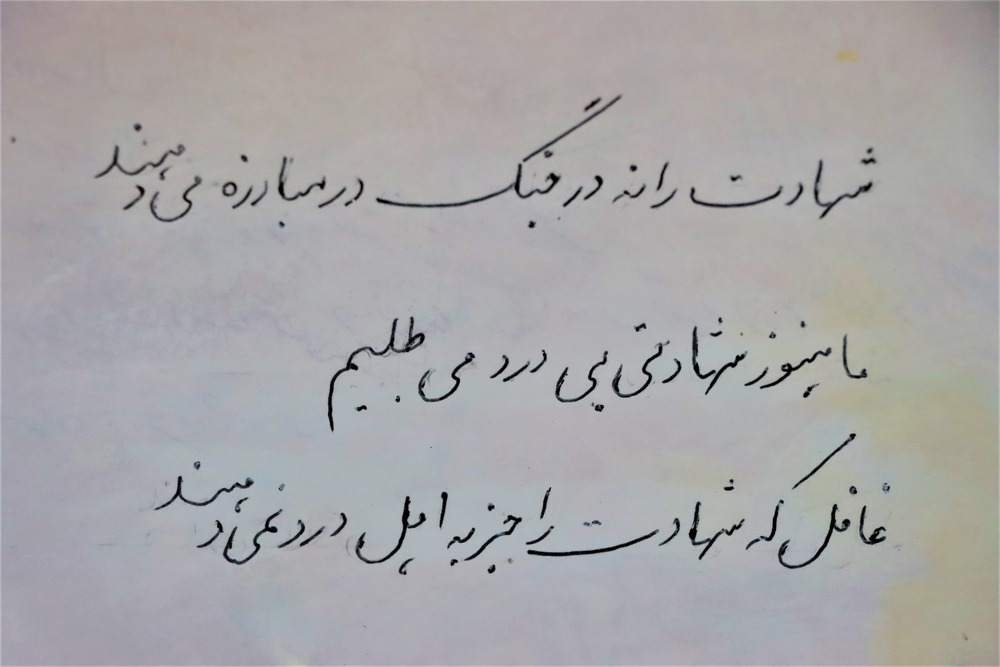 شهادت را نه در جنگ در مبارزه می‌دهند
ما هنوز شهادتی بی درد می طلبیم
غافل که شهادت را جز به اهل درد نمی‌دهند